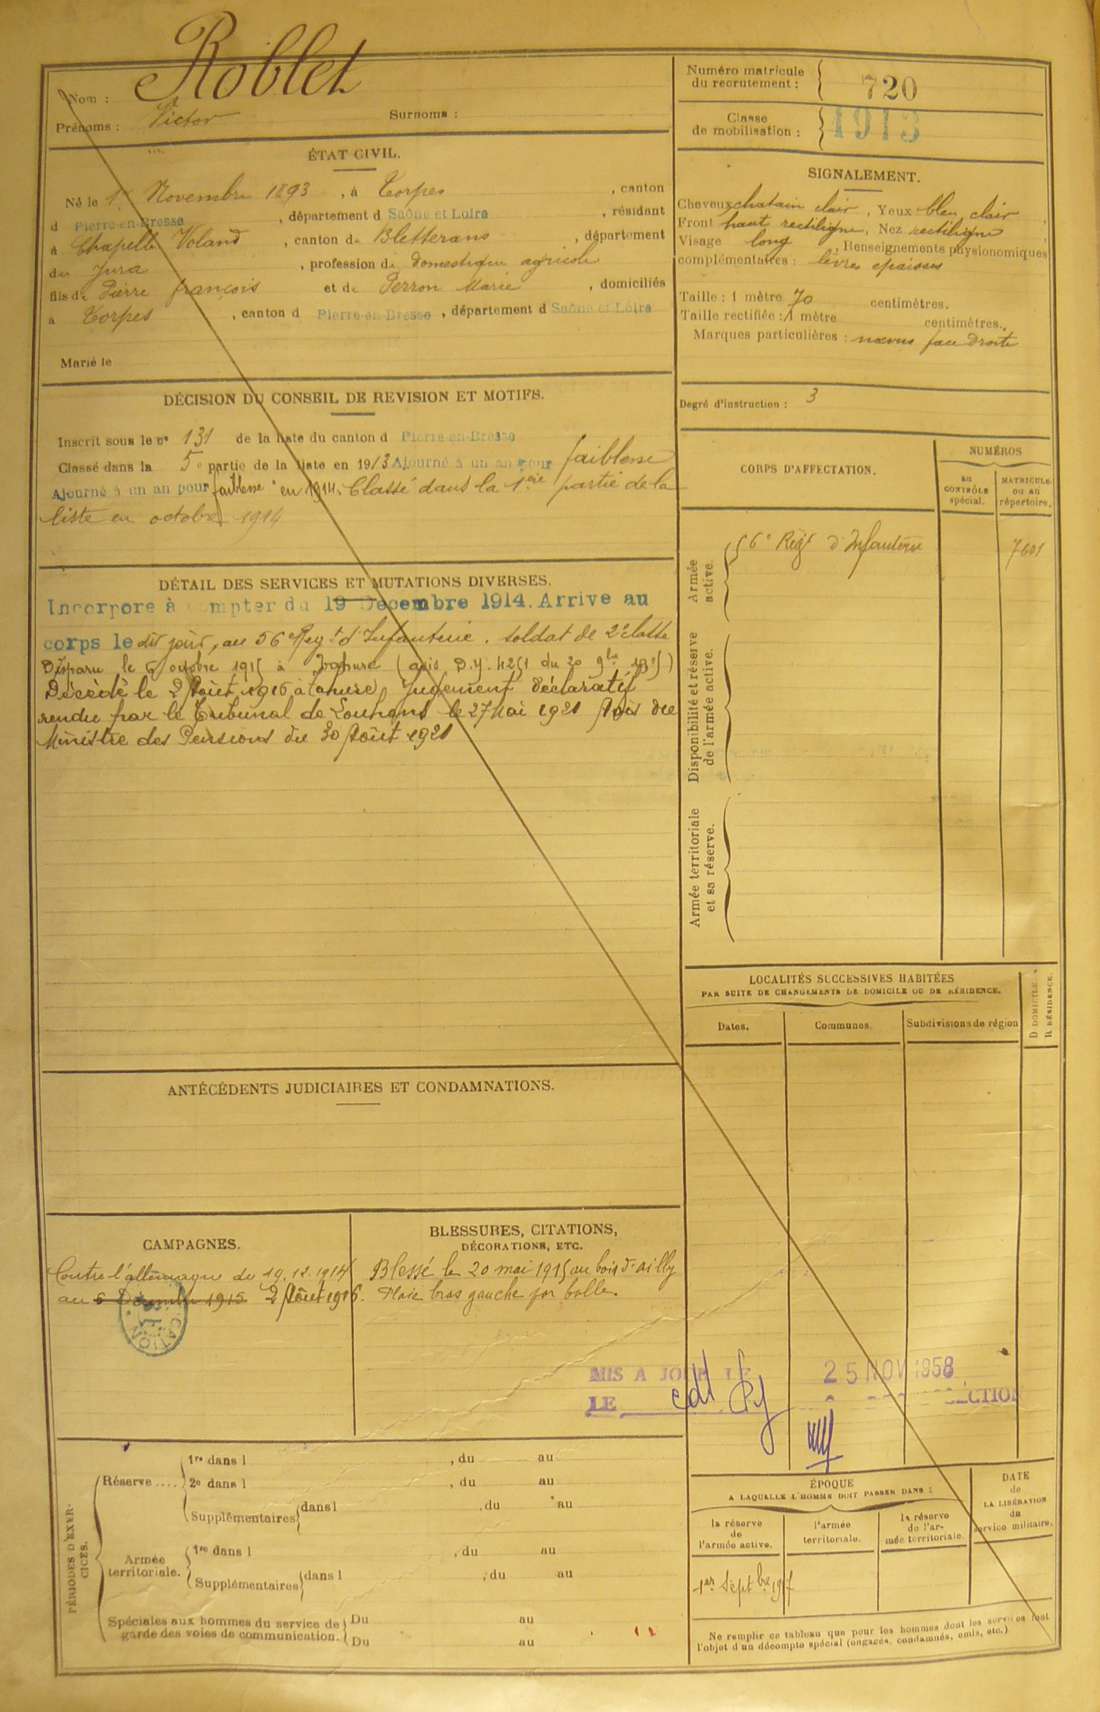 Nom : Roblet
Prénoms : Victor Surnoms :
Numéro matricule du recrutement : 720
Classe de mobilisation : 1913
ÉTAT CIVIL.
Né le 1er Novembre 1893, à Torpes, canton
d Pierre-en-Bresse, département d Saône et Loire, résidant
à Chapelle Voland, canton de Bletterans, département
du Jura, profession de domestique agricole
fils de Pierre françois et de Perron Marie, domiciliés
à Torpes, canton d Pierre-en-Bresse, département d Saône et Loire
Marié le
SIGNALEMENT.
Cheveux chatain clair, Yeux bleu clair,
Front haut rectiligne, Nez rectiligne
Visage long, Renseignements physionomiques
complémentaires : lèvres épaisses
Taille : 1 mètre 70 centimètres.
Taille rectifiée : 1 mètre centimètres.
Marques particulières : nœvus face droite
Degré d'instruction : 3
DÉCISION DU CONSEIL DE REVISION ET MOTIFS.
Inscrit sous le no 131 de la liste du canton d Pierre-en-Bresse
Classé dans la 5e partie de la liste en 1913 Ajourné à un an pour faiblesse
Ajourné à un an pour faiblesse en 1914. Classé dans la 1ère partie de la
liste en octobre 1914
CORPS D'AFFECTATION.
NUMÉROS
au CONTRÔLE spécial.
MATRICULE ou au répertoire.
Armée active.
56e Régt d'Infanterie 7601
Disponibilité et réserve de l'armée active.
Armée territoriale et sa réserve.
DÉTAIL DES SERVICES ET MUTATIONS DIVERSES.
Incorporé à compter du 19 Décembre 1914. Arrivé au
corps le dit jour, au 56e Regt d'Infanterie. soldat de 2e classe
Disparu le 6 octobre 1915 à Tahure (avis D.Y. 4251 du 20 9bre 1915)
Décédé le 2 Août 1916 à Tahure, Jugement déclaratif
rendu par le Tribunal de Louhans le 27 Mai 1921 Avis du
Ministre des Pensions du 30 Août 1921
LOCALITÉS SUCCESSIVES HABITÉES
PAR SUITE DE CHANGEMENTS DE DOMICILE OU DE RÉSIDENCE.
Dates. Communes. Subdivisions de région
D. DOMICILE.
R. RÉSIDENCE.
ANTÉCÉDENTS JUDICIAIRES ET CONDAMNATIONS.
CAMPAGNES.
Contre l'allemagne du 19.12.1914
au 6 Décembre 1915 2 Août 1916.
BLESSURES, CITATIONS,
DÉCORATIONS, ETC.
Blessé le 20 mai 1915 au bois d'ailly
Plaie bras gauche par balle.
MIS A JOUR LE 25 NOV 1958
LE
PÉRIODES D'EXERCICES.
Réserve .... 1re dans l , du au
2e dans l , du au
Supplémentaires dans l , du au
Armée territoriale. 1re dans l , du au
Supplémentaires dans l , du au
Spéciales aux hommes du service de garde des voies de communication. Du au
Du au
ÉPOQUE
A LAQUELLE L'HOMME DOIT PASSER DANS :
la réserve de l'armée active.
l'armée territoriale.
la réserve de l'armée territoriale.
DATE de LA LIBÉRATION du service militaire.
1er Septbre 1917
Ne remplir ce tableau que pour les hommes dont les services font
l'objet d'un décompte spécial (engagés, condamnés, omis, etc.)